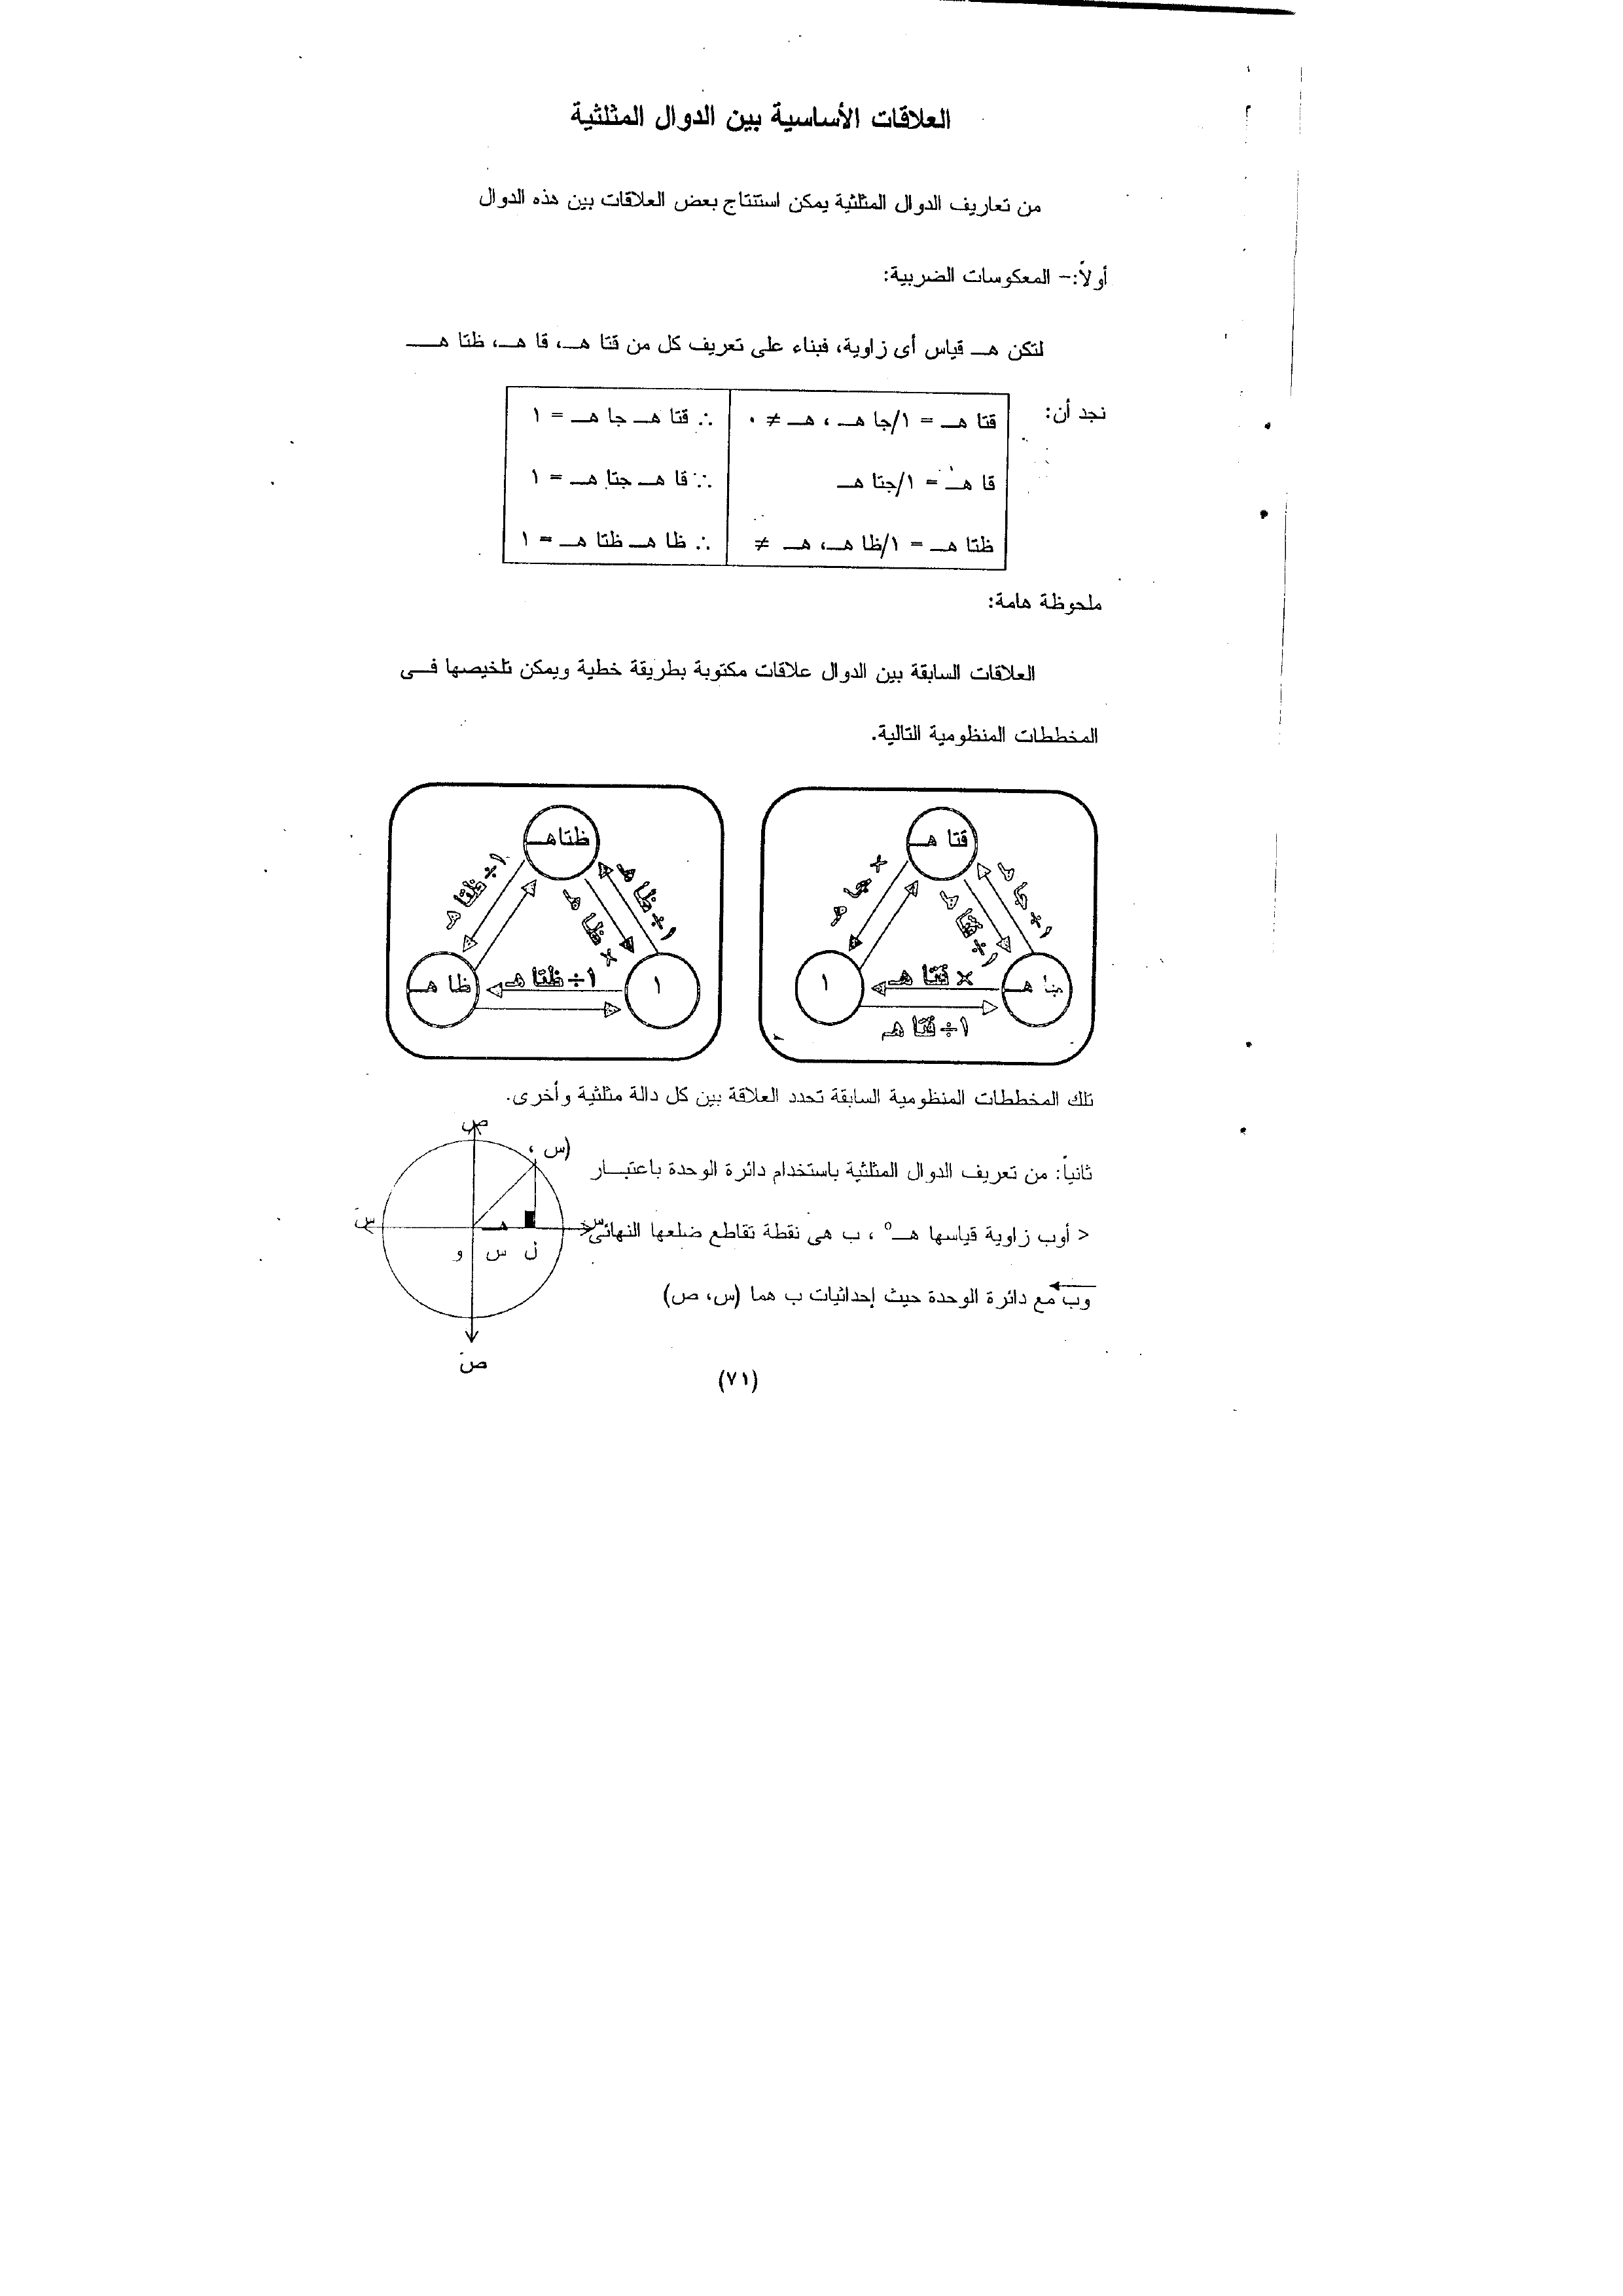 العلاقات الأساسية بين الدوال المثلثية
من تعاريف الدوال المثلثية يمكن استنتاج بعض العلاقات بين هذه الدوال
أولاً:- المعكوسات الضربية:
لتكن هـ قياس أى زاوية، فبناء على تعريف كل من قتا هـ، قا هـ، ظتا هـ
نجد أن:
قتا هـ = ١/جا هـ ، هـ ≠ ٠
∴ قتا هـ جا هـ = ١
قا هـ = ١/جتا هـ
∴ قا هـ جتا هـ = ١
ظتا هـ = ١/ظا هـ، هـ ≠
∴ ظا هـ ظتا هـ = ١
ملحوظة هامة:
العلاقات السابقة بين الدوال علاقات مكتوبة بطريقة خطية ويمكن تلخيصها فى
المخططات المنظومية التالية.
قتا هـ
× جا هـ
١÷ جا هـ
١÷ قتا هـ
١
× قتا هـ
جا هـ
١÷ قتا هـ
ظتاهـ
١÷ ظتا هـ
١÷ ظا هـ
× ظا هـ
ظا هـ
١÷ ظتا هـ
١
تلك المخططات المنظومية السابقة تحدد العلاقة بين كل دالة مثلثية وأخرى.
ثانياً: من تعريف الدوال المثلثية باستخدام دائرة الوحدة باعتبار
< أوب زاوية قياسها هـ° ، ب هى نقطة تقاطع ضلعها النهائى
وب مع دائرة الوحدة حيث إحداثيات ب هما (س، ص)
ص
(س ،
س
هـ
سَ
و س ل
صَ
(٧١)